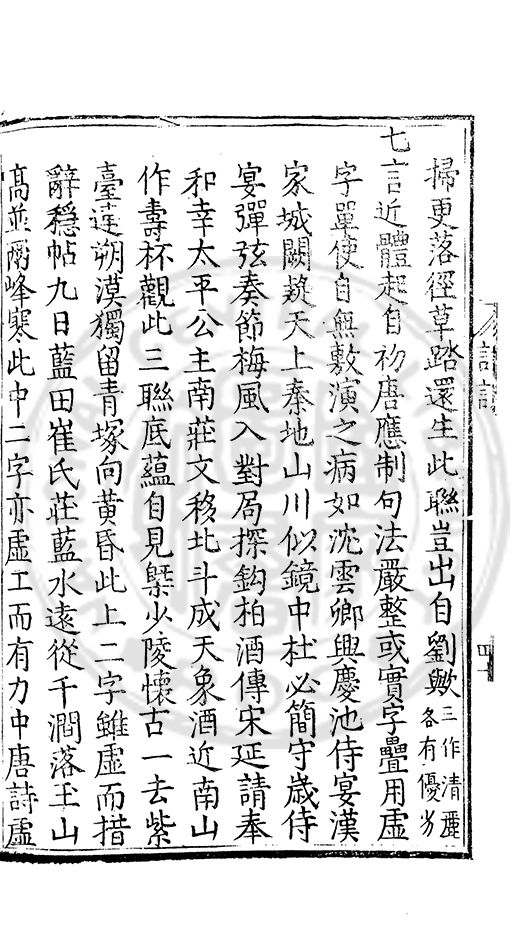 掃更落徑草踏還生此聯豈出自劉歟三作清麗各有優劣
七言近體起自初唐應制句法嚴整或實字疊用虛
字單使自無敷演之病如沈雲卿興慶池侍宴漢
家城闕疑天上秦地山川似鏡中杜必簡守歲侍
宴彈弦奏節梅風入對局探鈎柏酒傳宋延請奉
和幸太平公主南莊文移北斗成天象酒近南山
作壽杯觀此三聯底蘊自見槩少陵懷古一去紫
臺連朔漠獨留青塚向黃昏此上二字雖虛而措
辭穩帖九日藍田崔氏莊藍水遠從千澗落玉山
高並兩峰寒此中二字亦虛工而有力中唐詩虛